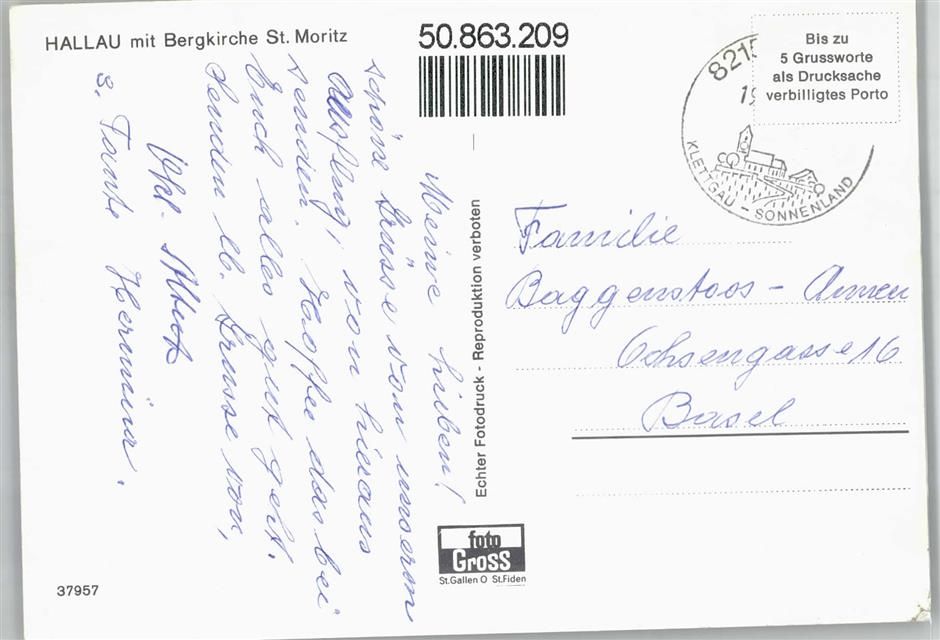 HALLAU mit Bergkirche St. Moritz
50.863.209
Bis zu
5 Grussworte
als Drucksache
verbilligtes Porto
8215
19
KLETTGAU - SONNENLAND
Meine Lieben!
schöne Grüsse von unserm
Ausflug, von hieraus
senden. Hoffe das bei
Euch alles gut geht.
Senden lb. Grüsse von,
Albert
u. Tante Hermina.
Echter Fotodruck - Reproduktion verboten
Familie
Baggenstoos -
Ochsengasse 16
Basel
foto
Gross
St.Gallen O St.Fiden
37957